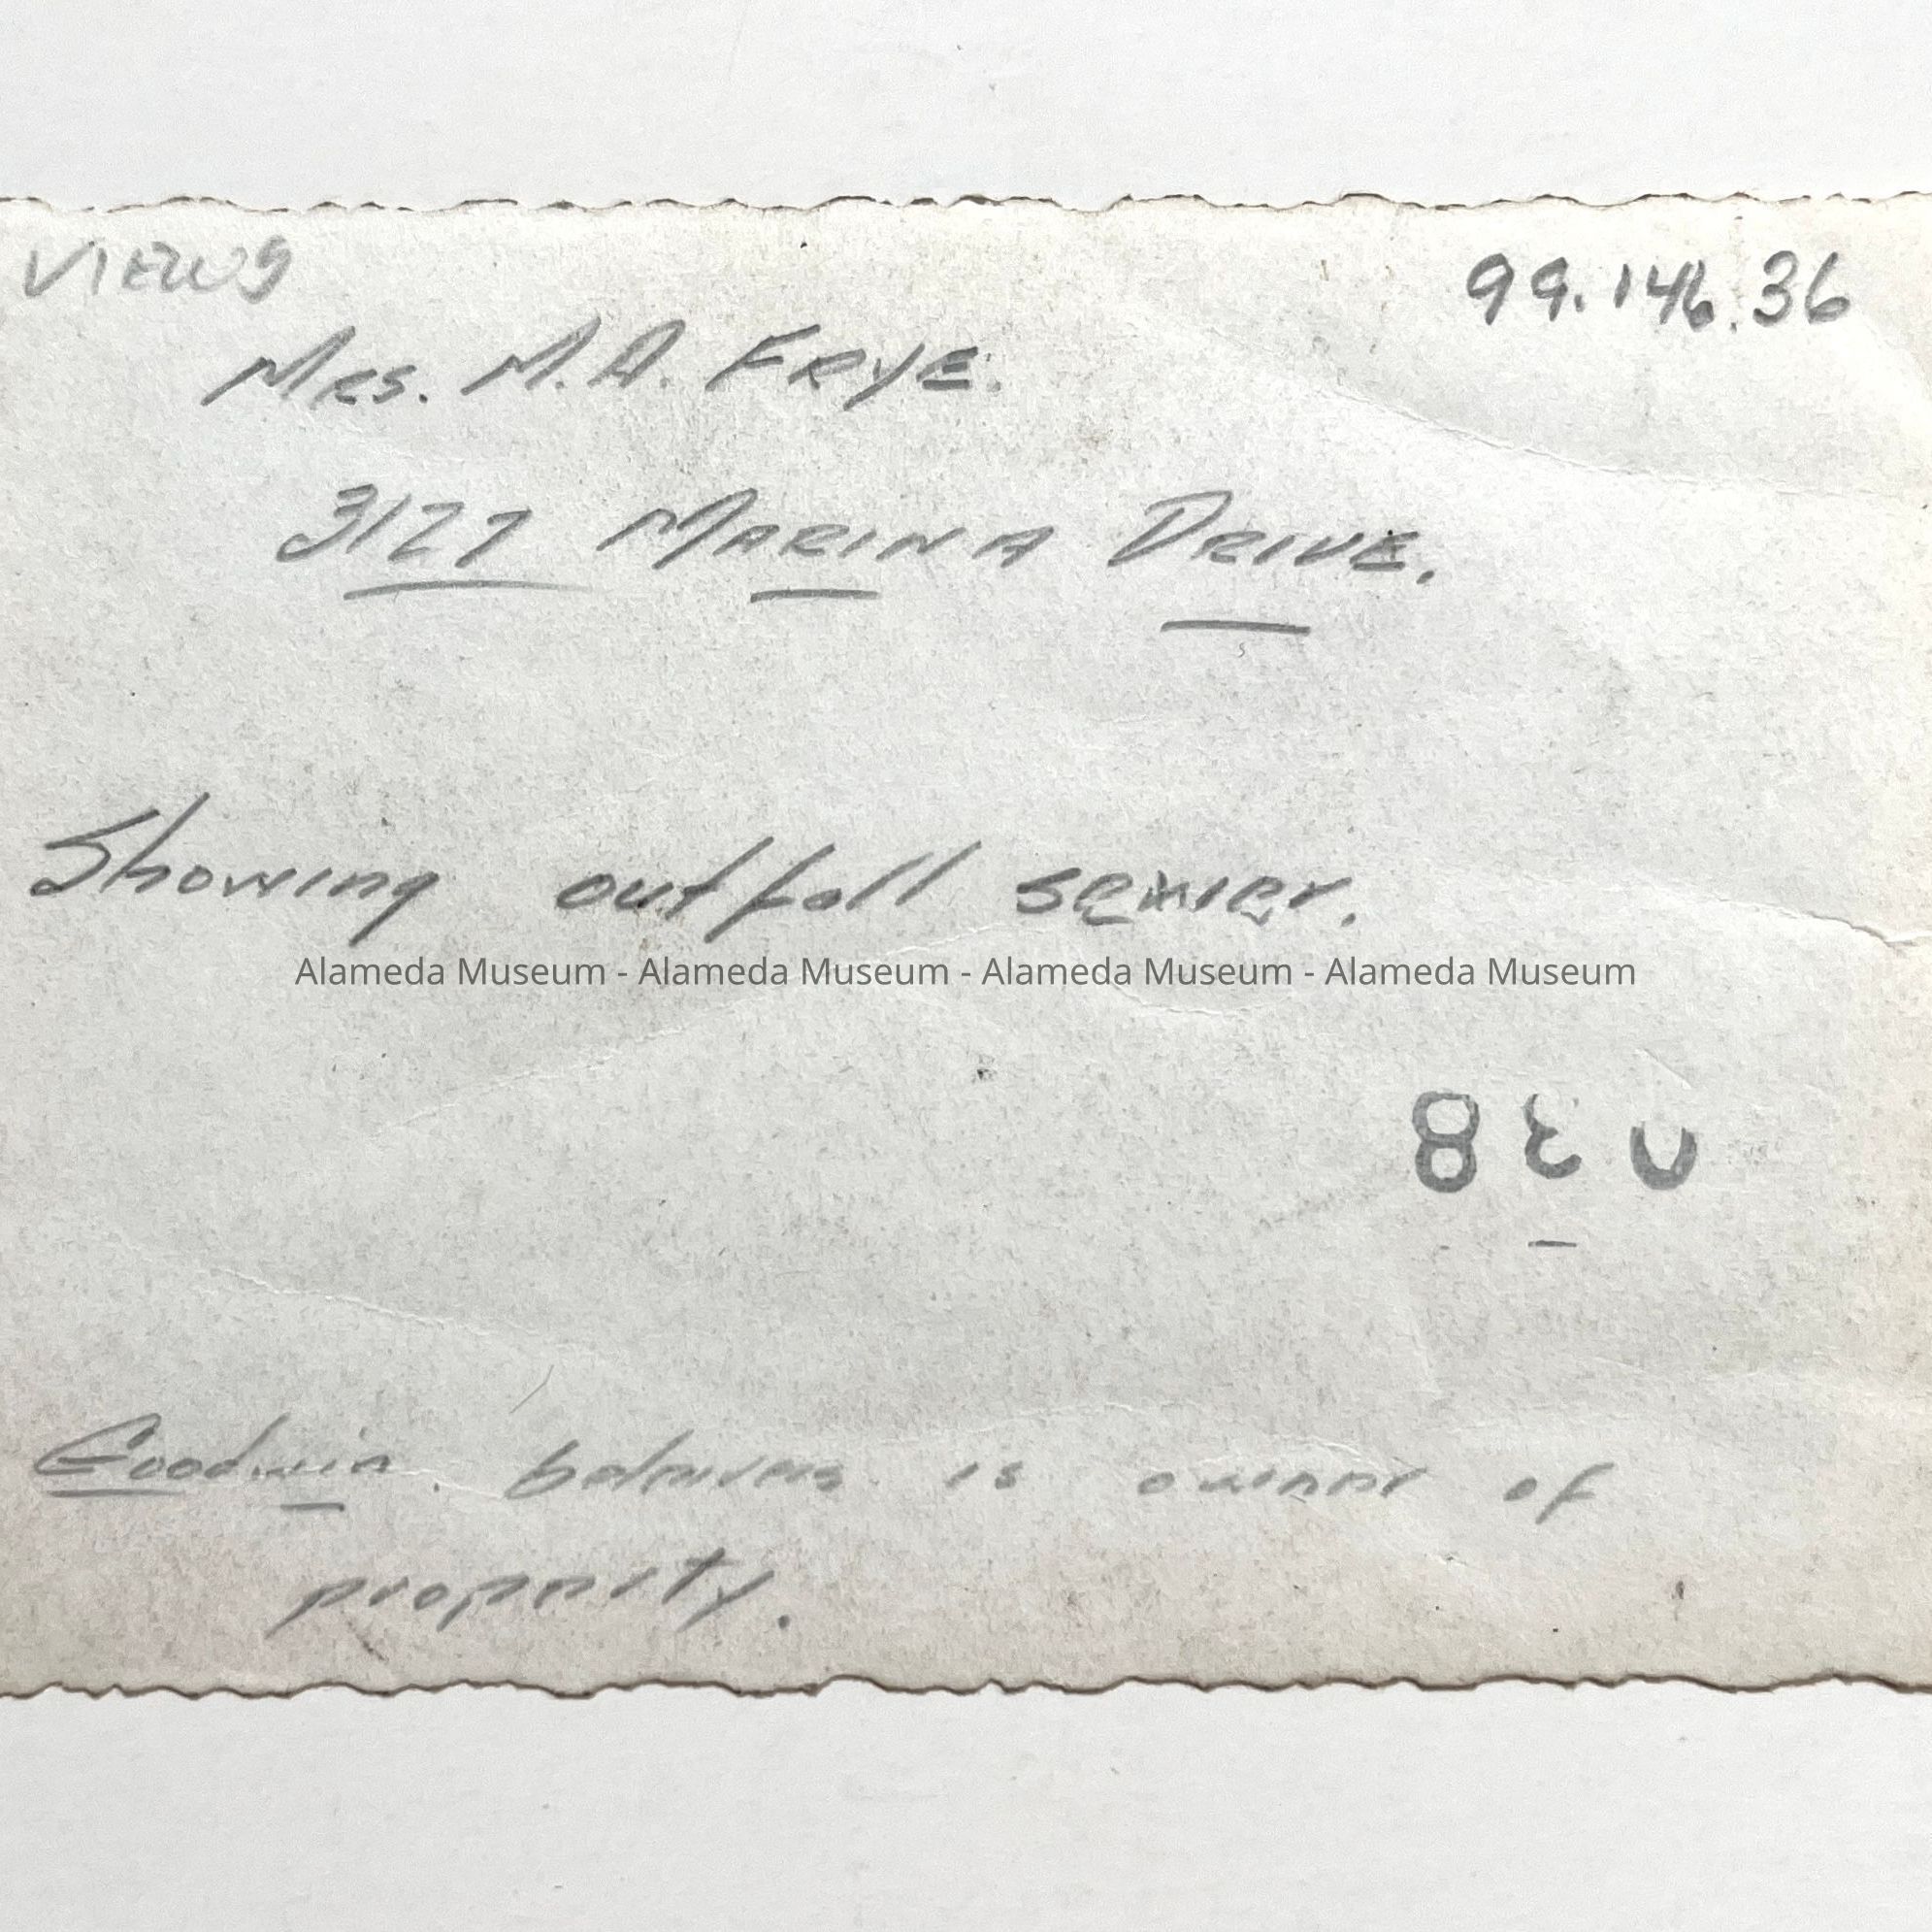 VIEWS
99.146.36
Mrs. M.A. FRYE.
3127 MARINA DRIVE.
Showing outfall sewer.
Alameda Museum - Alameda Museum - Alameda Museum - Alameda Museum
Goodwin. believes is owner of
property.